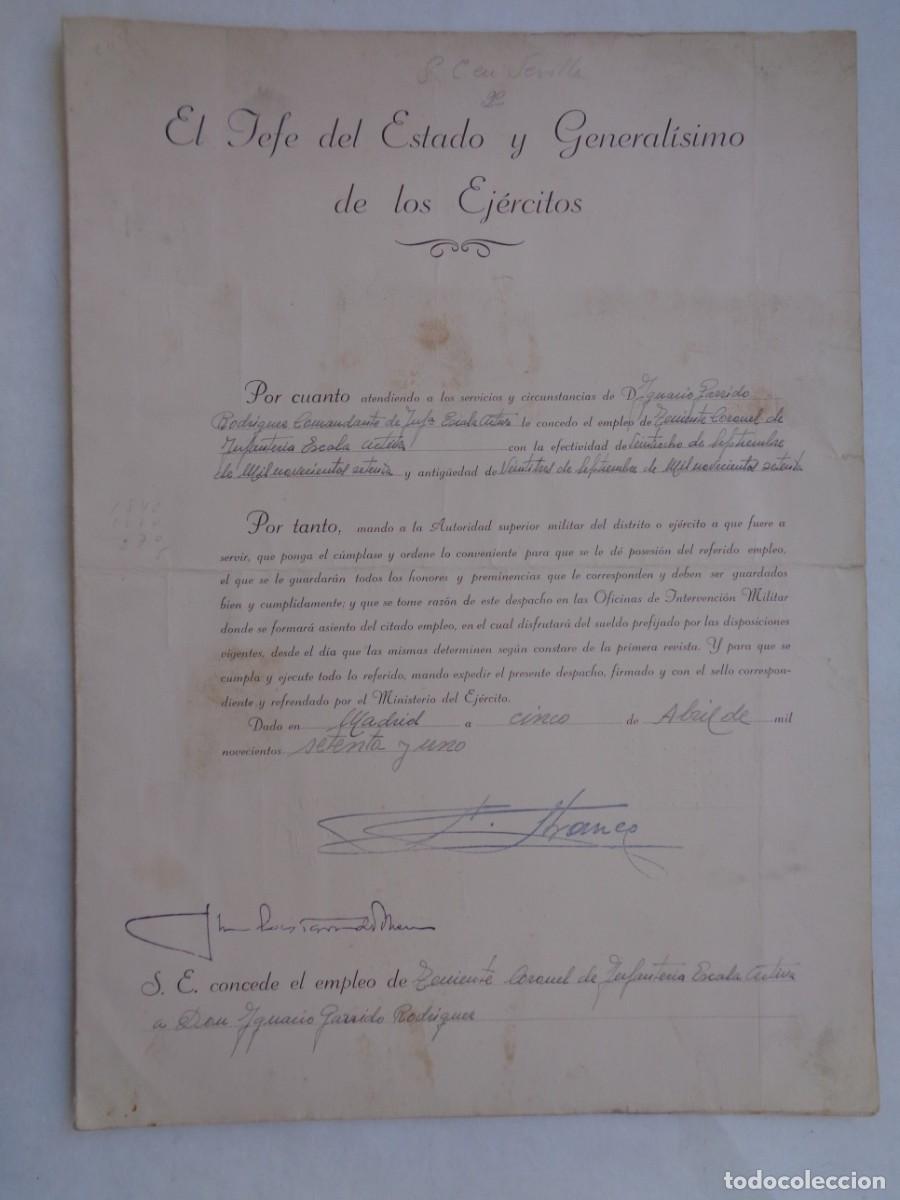 S. C en Sevilla
El Jefe del Estado y Generalísimo
de los Ejércitos
Por cuanto atendiendo a los servicios y circunstancias de D. Ignacio Garrido
Rodriguez Comandante de Infª Escala Activa le concedo el empleo de Teniente Coronel de
Infanteria Escala Activa con la efectividad de Veintiocho de Septiembre
de Mil novecientos setenta y antigüedad de Veintitres de Septiembre de Mil novecientos setenta
Por tanto, mando a la Autoridad superior militar del distrito o ejército a que fuere a
servir, que ponga el cúmplase y ordene lo conveniente para que se le dé posesión del referido empleo,
el que se le guardarán todos los honores y preminencias que le corresponden y deben ser guardados
bien y cumplidamente; y que se tome razón de este despacho en las Oficinas de Intervención Militar
donde se formará asiento del citado empleo, en el cual disfrutará del sueldo prefijado por las disposiciones
vigentes, desde el día que las mismas determinen según constare de la primera revista. Y para que se
cumpla y ejecute todo lo referido, mando expedir el presente despacho, firmado y con el sello correspon-
diente y refrendado por el Ministerio del Ejército.
Dado en Madrid a cinco de Abril de mil
novecientos setenta y uno
F. Franco
S. E. concede el empleo de Teniente Coronel de Infanteria Escala Activa
a Don Ignacio Garrido Rodriguez
todocoleccion